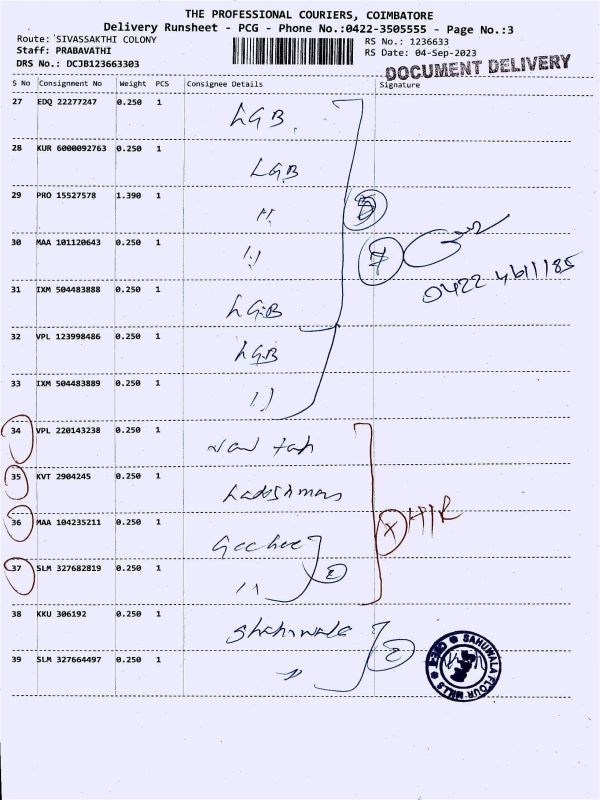 THE PROFESSIONAL COURIERS, COIMBATORE
Delivery Runsheet - PCG - Phone No.:0422-3505555 - Page No.:3
Route: 'SIVASSAKTHI COLONY
Staff: PRABAVATHI
DRS No.: DCJB123663303
RS No.: 1236633
RS Date: 04-Sep-2023
DOCUMENT DELIVERY
S No Consignment No Weight PCS Consignee Details Signature
27 EDQ 22277247 0.250 1 LGB
28 KUR 6000092763 0.250 1 LGB
29 PRO 15527578 1.390 1 "
30 MAA 101120643 0.250 1 "
7
0422 4611185
31 IXM 504483888 0.250 1 LGB
32 VPL 123998486 0.250 1 LGB
33 IXM 504483889 0.250 1 "
34 VPL 220143238 0.250 1
35 KVT 2904245 0.250 1
36 MAA 104235211 0.250 1
X H/R
37 SLM 327682819 0.250 1 "
2
38 KKU 306192 0.250 1
2
39 SLM 327664497 0.250 1 "
SAHUWALA FLOUR MILLS